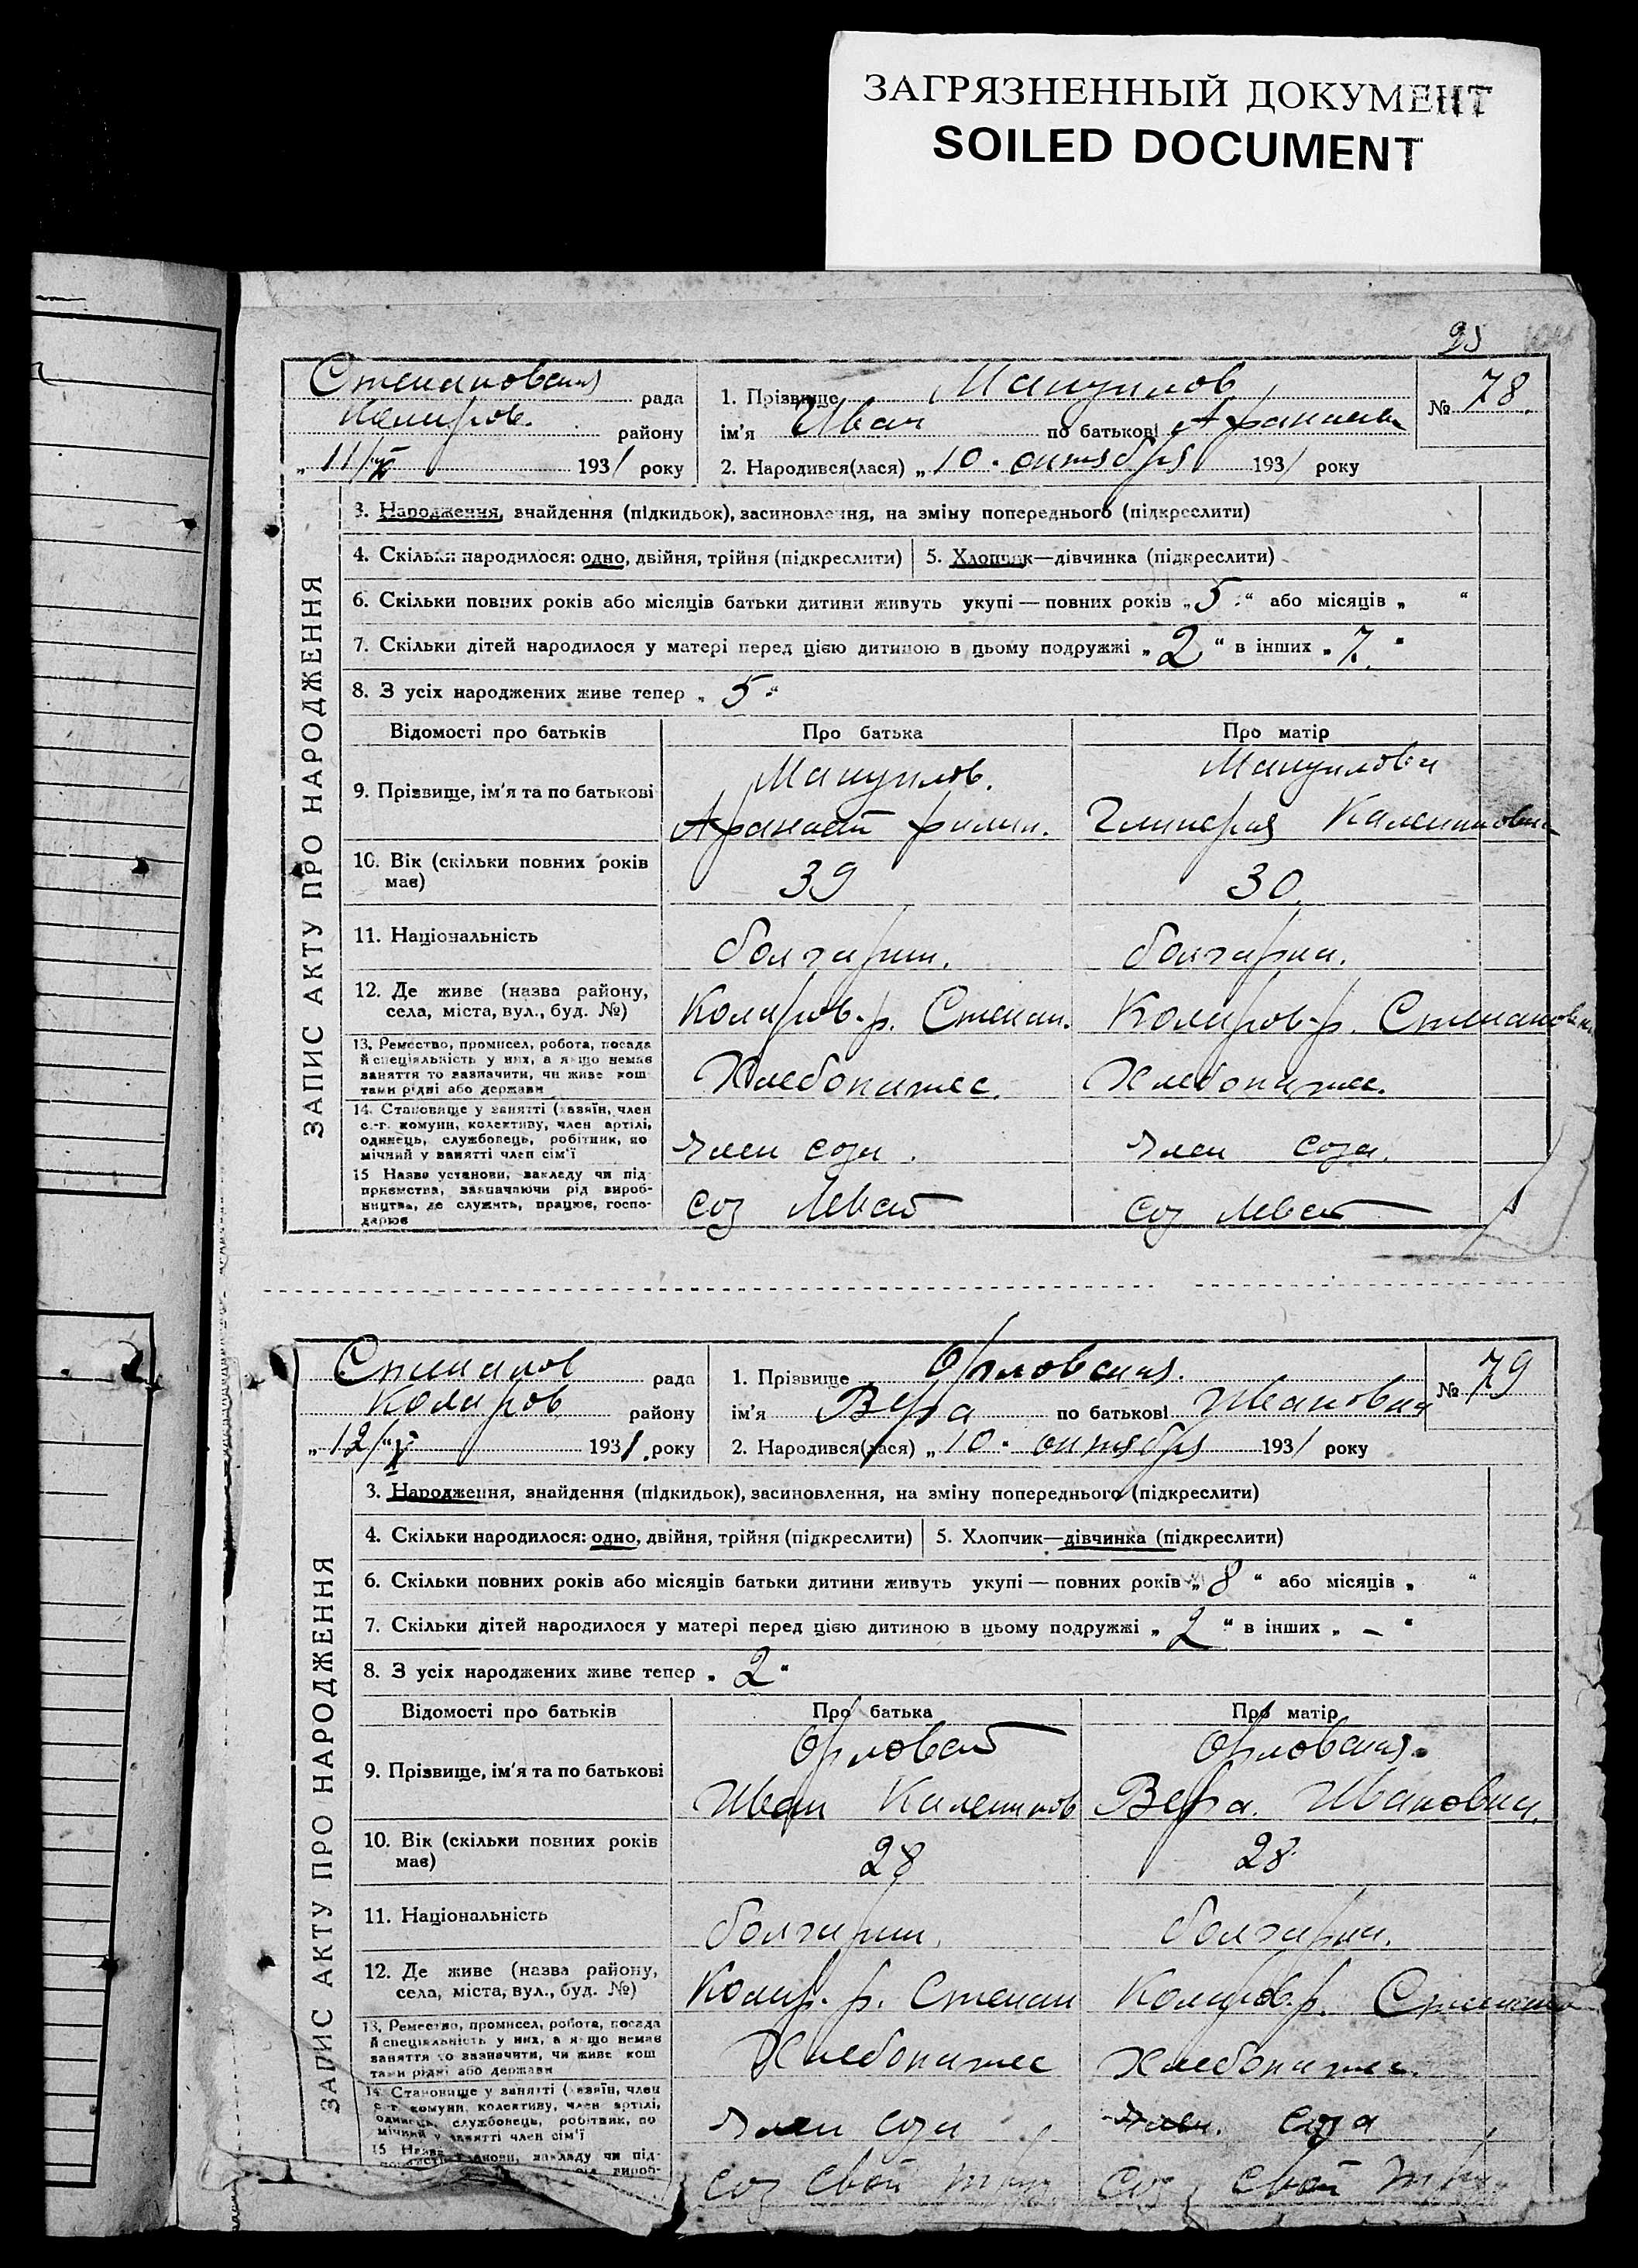 ЗАГРЯЗНЕННЫЙ ДОКУМЕНТ
SOILED DOCUMENT
95
ЗАПИС АКТУ ПРО НАРОДЖЕННЯ
Степановская рада
Коларов. району
„11/X 1931 року
1. Прізвище Мануилов
ім'я Иван по батькові Афанасьев
2. Народився(лася) „10. октября 1931 року
№ 78.
3. Народження, знайдення (підкидьок), засиновлення, на зміну попереднього (підкреслити)
4. Скільки народилося: одно, двійня, трійня (підкреслити) 5. Хлопчик—дівчинка (підкреслити)
6. Скільки повних років або місяців батьки дитини живуть укупі — повних років „5“ або місяців „ “
7. Скільки дітей народилося у матері перед цією дитиною в цьому подружжі „2“ в інших „7.“
8. З усіх народжених живе тепер „5“
Відомості про батьків Про батька Про матір
9. Прізвище, ім'я та по батькові
Мануилов. Мануилова
Афанасий филип. Гликерия Калениковна
10. Вік (скільки повних років має) 39 30.
11. Національність болгарин. болгарка.
12. Де живе (назва району, села, міста, вул., буд. №) Коларов.р. Степан. Коларов.р. Степановка
13. Ремество, промисел, робота, посада
й спеціяльність у них, а якщо немає
заняття то зазначити, чи живе кош
тами рідні або держави
Хлебопашес. Хлебопашес.
14. Становище у занятті (хазяїн, член
с.-г. комуни, колективу, член артілі,
одинець, службовець, робітник, по
мічний у занятті член сім'ї
член соза. член соза.
15 Назва установи, закладу чи під
приємства, зазначаючи рід вироб-
ництва, де служить, працює, госпо-
дарює
соз Левай соз Левай
ЗАПИС АКТУ ПРО НАРОДЖЕННЯ
Степанов рада
Коларов району
„12/X 1931. року
1. Прізвище Орловская.
ім'я Вера по батькові Ивановна
2. Народився(лася) „10. октября 1931 року
№ 79
3. Народження, знайдення (підкидьок), засиновлення, на зміну попереднього (підкреслити)
4. Скільки народилося: одно, двійня, трійня (підкреслити) 5. Хлопчик—дівчинка (підкреслити)
6. Скільки повних років або місяців батьки дитини живуть укупі — повних років „8“ або місяців „ “
7. Скільки дітей народилося у матері перед цією дитиною в цьому подружжі „2“ в інших „—“
8. З усіх народжених живе тепер „2“
Відомості про батьків Про батька Про матір
9. Прізвище, ім'я та по батькові
Орловский Орловская.
Иван Калеников Вера. Ивановна.
10. Вік (скільки повних років має) 28 28
11. Національність болгарин. болгарка.
12. Де живе (назва району, села, міста, вул., буд. №) Колар. р. Степан Коларов.р. Степано
13. Ремество, промисел, робота, посада
й спеціяльність у них, а якщо немає
заняття то зазначити, чи живе кош
тами рідні або держави
Хлебопашес Хлебопашес.
14. Становище у занятті (хазяїн, член
с.-г. комуни, колективу, член артілі,
одинець, службовець, робітник, по
мічний у занятті член сім'ї
член соза член. соза
15 Назва установи, закладу чи під-
вироб-
соз свой труд соз свой труд